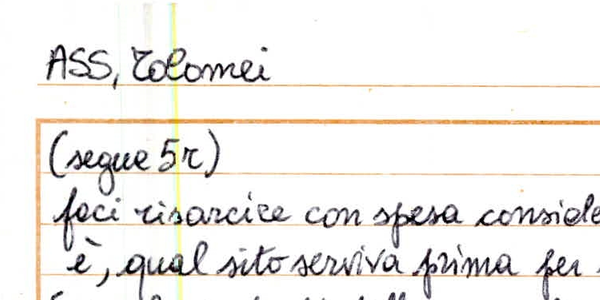 ASS, Tolomei
(segue 5r)
feci risarcire con spesa conside
è, qual sito serviva prima per